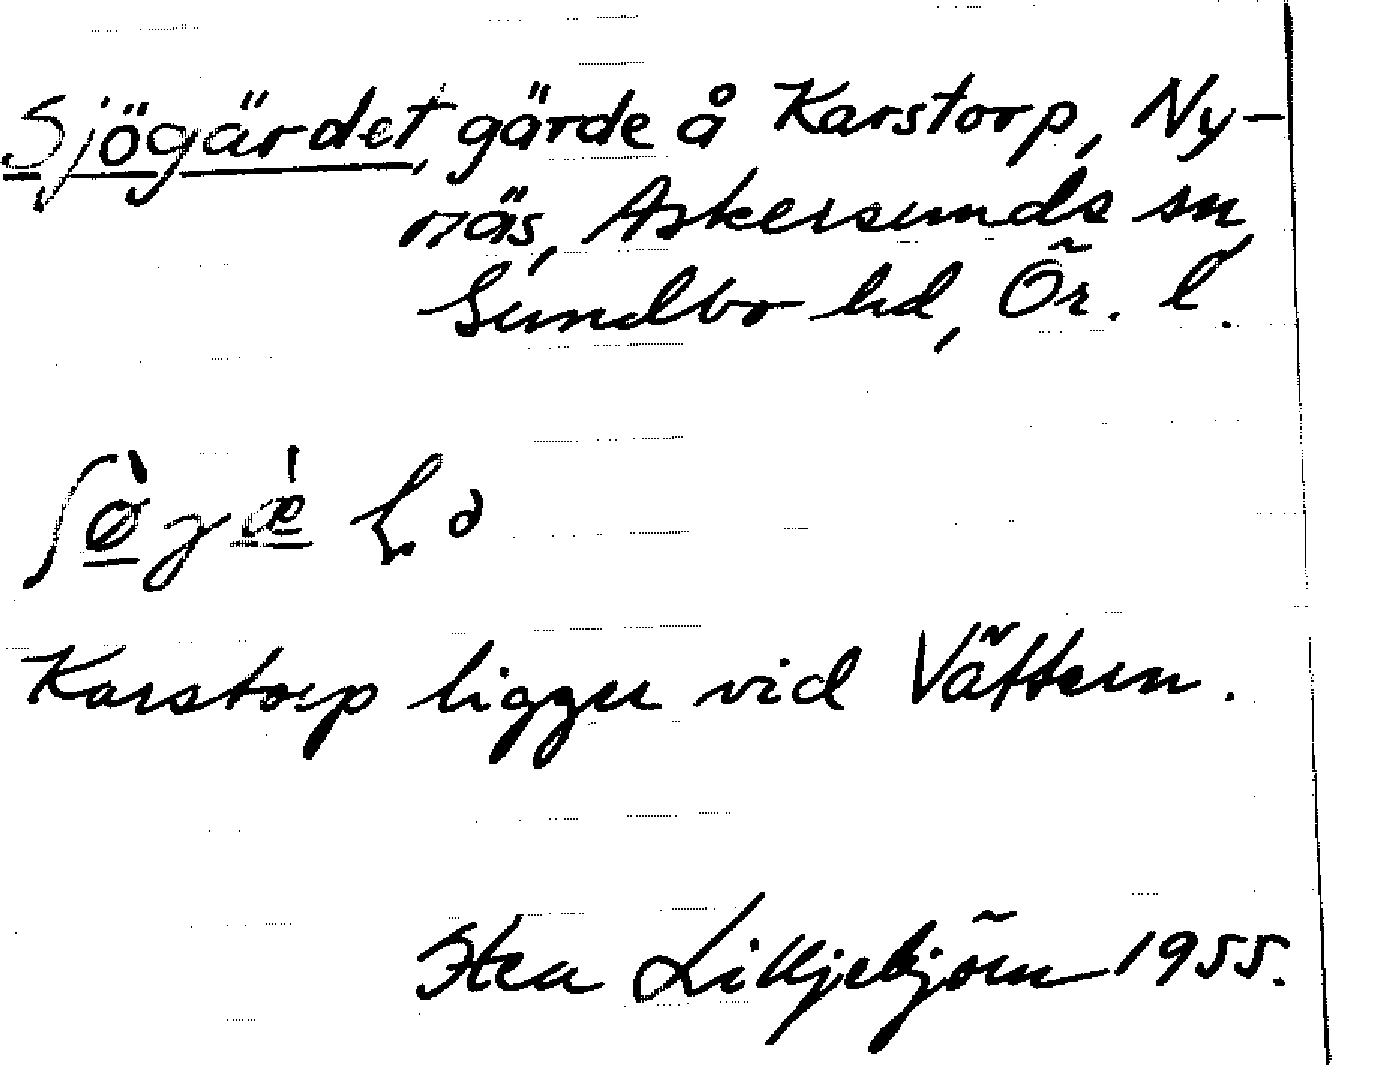 Sjögärdet, gärde å Karstorp, Ny-
näs, Askersunds sn,
Sundbo hd, Ör. l.
Karstorp ligger vid Vättern.
Lilljebjörn 1955.